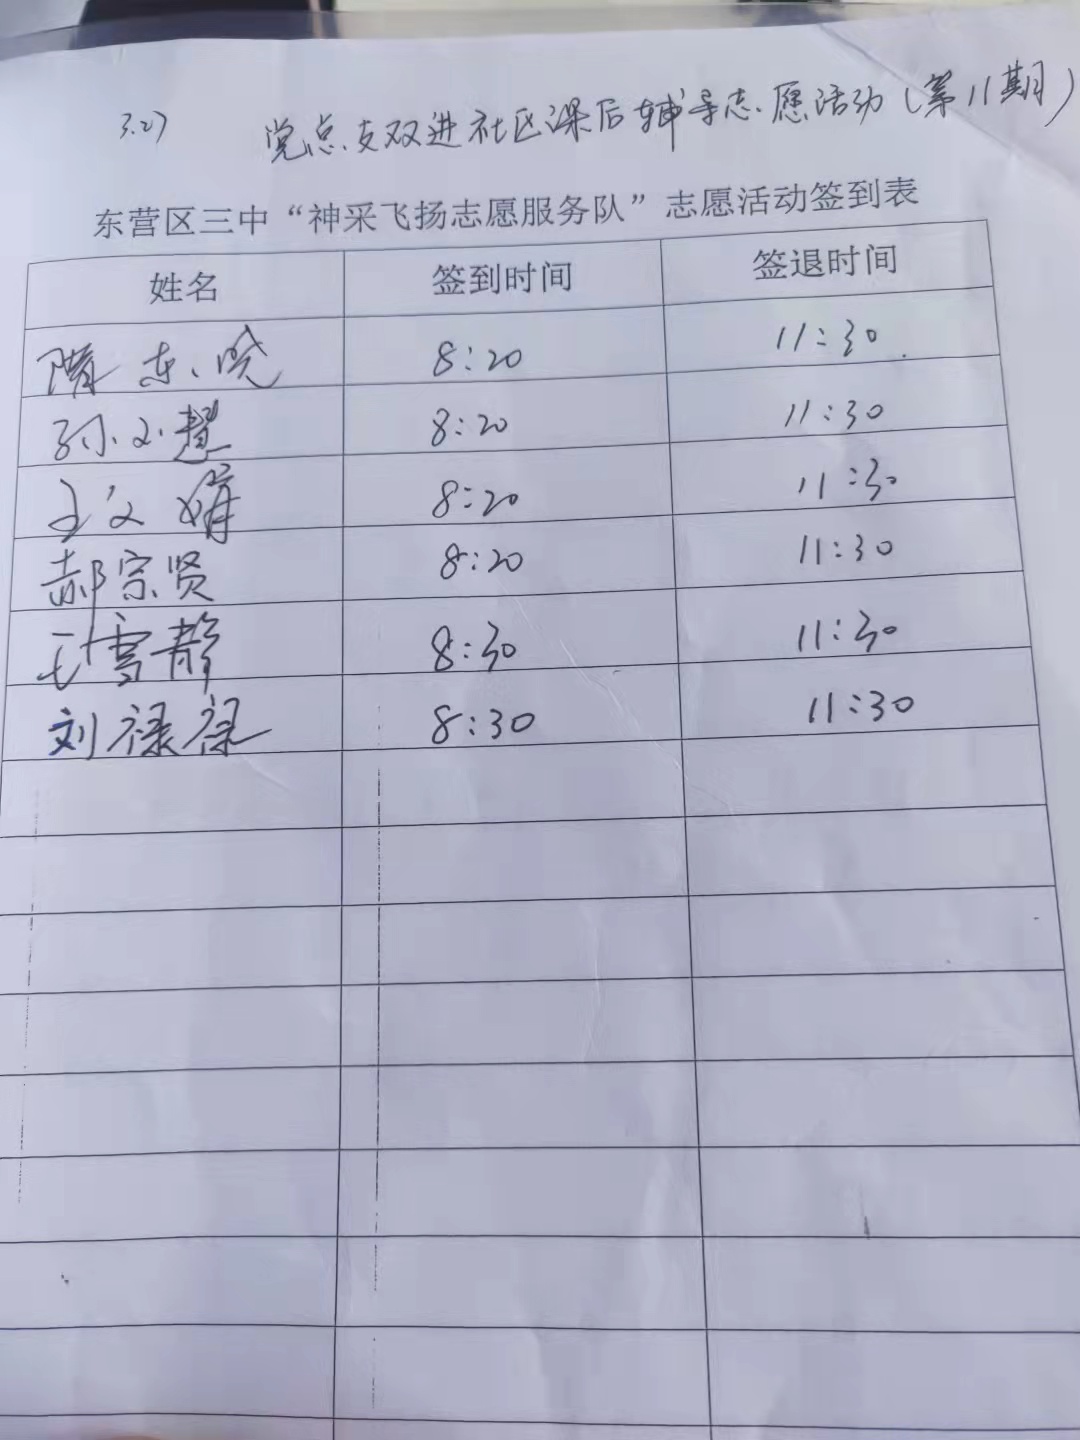 3.27 党总支双进社区课后辅导志愿活动(第11期)
东营区三中“神采飞扬志愿服务队”志愿活动签到表
姓名 签到时间 签退时间
隋东晓 8:20 11:30
孙文慧 8:20 11:30
王文娟 8:20 11:30
郝宗贤 8:20 11:30
王雪静 8:30 11:30
刘禄禄 8:30 11:30